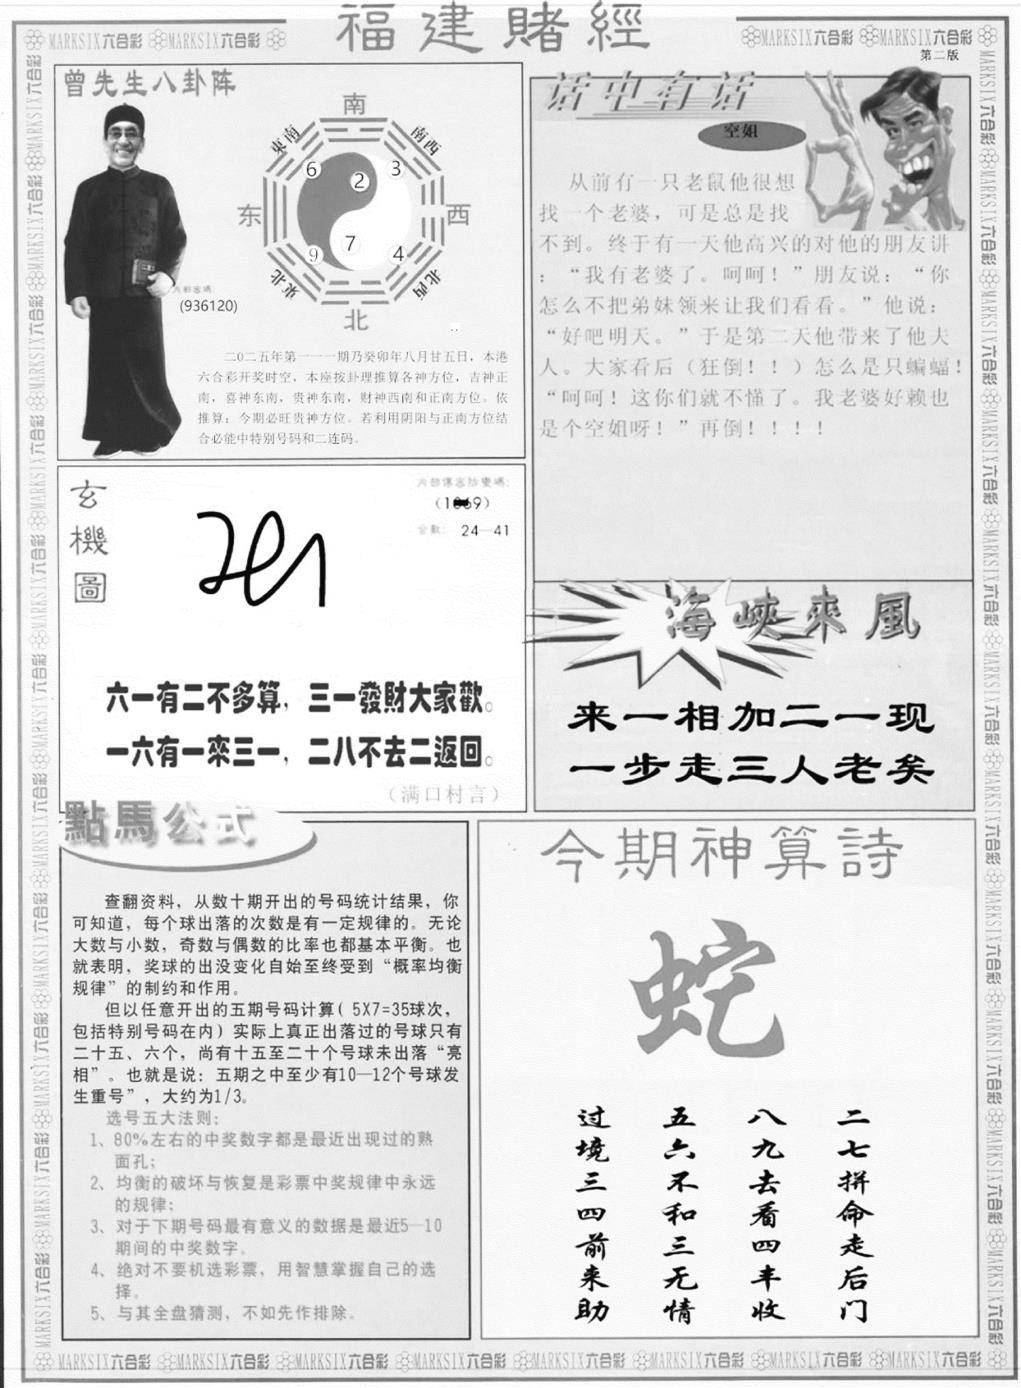 福建賭經
MARKSIX六合彩 MARKSIX六合彩
MARKSIX六合彩 MARKSIX六合彩
第二版
曾先生八卦阵
南
東南
南西
6
2
3
东
西
9
7
4
東北
北西
北
内部密碼:
(936120)
二〇二五年第一一一期乃癸卯年八月廿五日，本港
六合彩开奖时空，本座按卦理推算各神方位，吉神正
南，喜神东南，贵神东南，财神西南和正南方位。依
推算：今期必旺贵神方位。若利用阴阳与正南方位结
合必能中特别号码和二连码。
话中有话
空姐
从前有一只老鼠他很想
找一个老婆，可是总是找
不到。终于有一天他高兴的对他的朋友讲
：“我有老婆了。呵呵！”朋友说：“你
怎么不把弟妹领来让我们看看。”他说：
“好吧明天。”于是第二天他带来了他夫
人。大家看后（狂倒！！）怎么是只蝙蝠！
“呵呵！这你们就不懂了。我老婆好赖也
是个空姐呀！”再倒！！！！
玄機圖
合數： 24—41
六一有二不多算，三一發財大家歡。
一六有一來三一，二八不去二返回。
（满口村言）
海峽來風
来一相加二一现
一步走三人老矣
點馬公式
查翻资料，从数十期开出的号码统计结果，你
可知道，每个球出落的次数是有一定规律的。无论
大数与小数，奇数与偶数的比率也都基本平衡。也
就表明，奖球的出没变化自始至终受到“概率均衡
规律”的制约和作用。
但以任意开出的五期号码计算( 5X7=35球次，
包括特别号码在内) 实际上真正出落过的号球只有
二十五、六个，尚有十五至二十个号球未出落“亮
相”。也就是说：五期之中至少有10—12个号球发
生重号”，大约为1/3。
选号五大法则：
1、80%左右的中奖数字都是最近出现过的熟
面孔；
2、均衡的破坏与恢复是彩票中奖规律中永远
的规律；
3、对于下期号码最有意义的数据是最近5—10
期间的中奖数字。
4、绝对不要机选彩票，用智慧掌握自己的选
择。
5、与其全盘猜测，不如先作排除。
今期神算詩
蛇
二七拼命走后门
八九去看四丰收
五六不和三无情
过境三四前来助
MARKSIX六合彩 MARKSIX六合彩 MARKSIX六合彩 MARKSIX六合彩 MARKSIX六合彩 MARKSIX六合彩 MARKSIX六合彩 MARKSIX六合彩